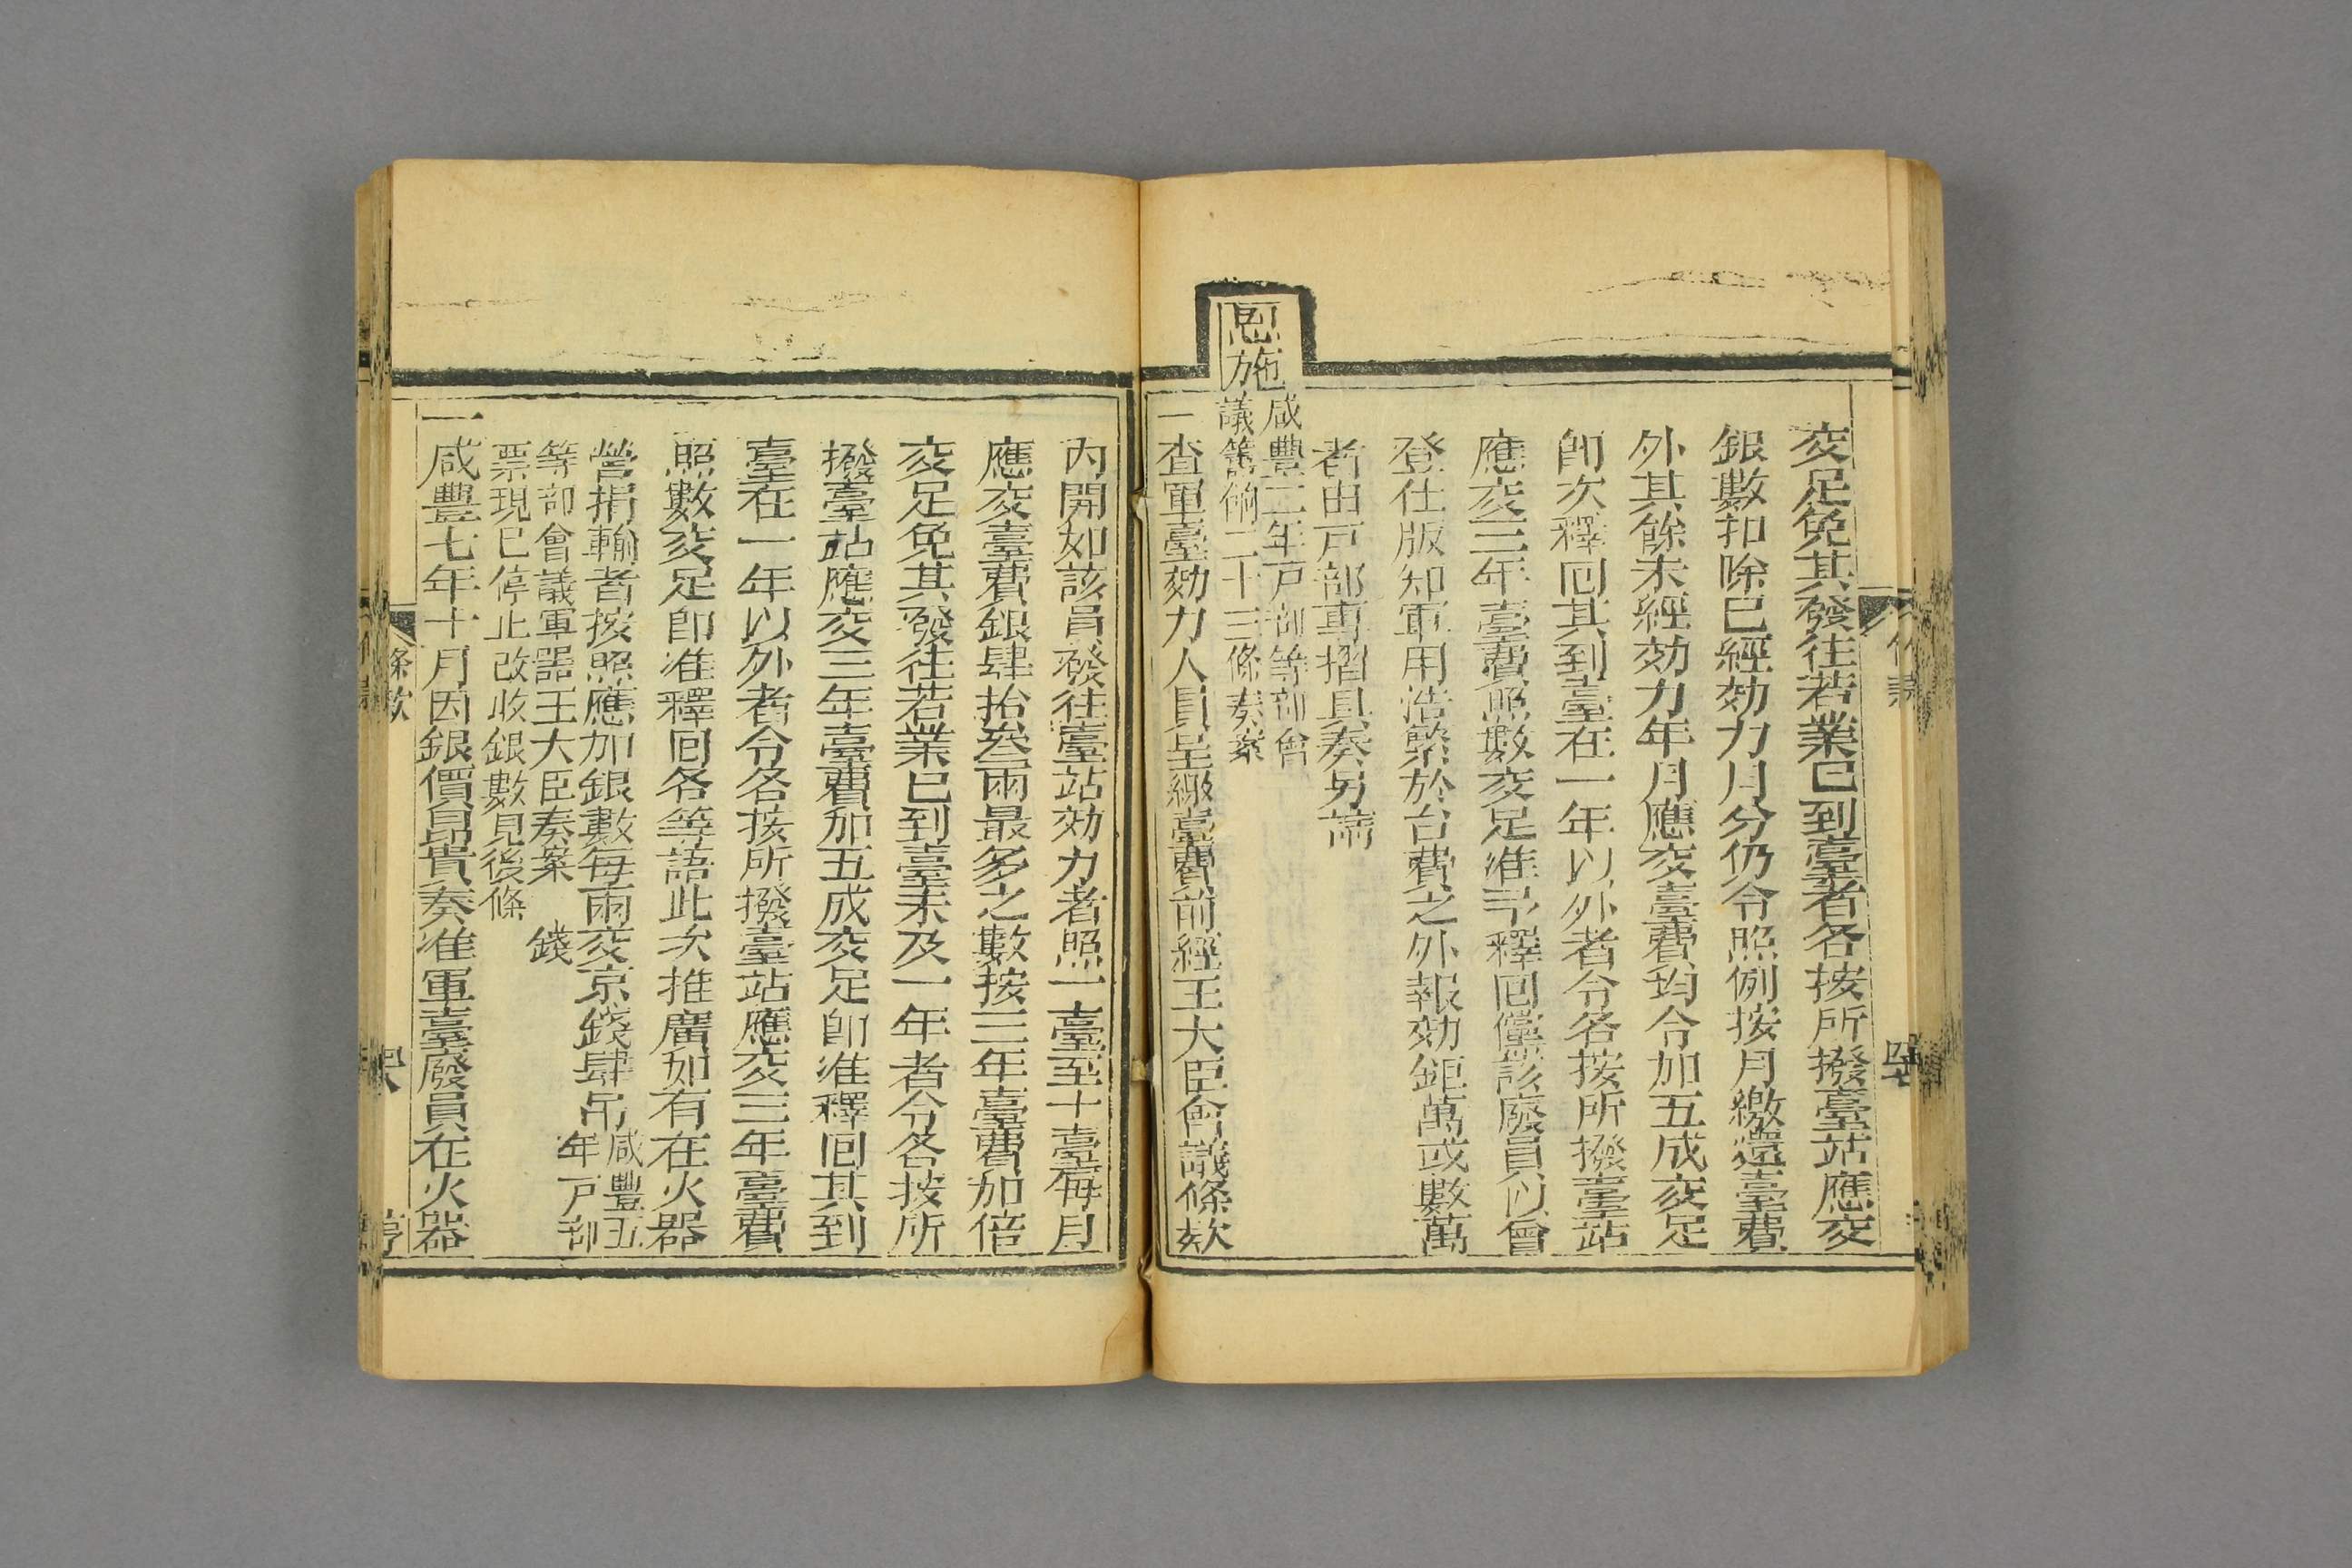 交足免其發往若業已到臺者各按所撥臺站應交
銀數扣除已經効力月分仍令照例按月繳還臺費
外其餘未經効力年月應交臺費均令加五成交足
卽次釋回其到臺在一年以外者令各按所撥臺站
應交三年臺費照數交足准予釋回儻該廢員以曾
登仕版知軍用浩繁於台費之外報効鉅萬或數萬
者由戸部專摺具奏另請
恩施
咸豐二年戸部等部會
議籌餉二十三條奏案
一查軍臺効力人員呈繳臺費前經王大臣會議條欵
內開如該員發往臺站効力者照一臺至十臺每月
應交臺費銀肆拾叁兩最多之數按三年臺費加倍
交足免其發往若業已到臺未及一年者令各按所
撥臺站應交三年臺費加五成交足卽准釋回其到
臺在一年以外者令各按所撥臺站應交三年臺費
照數交足卽准釋回各等語此次推廣如有在火器
營捐輸者按照應加銀數每兩交京錢肆吊
咸豐五
年戸部
等部會議軍器王大臣奏案 錢
票現已停止改收銀數見後條
一咸豐七年十月因銀價昂貴奏准軍臺廢員在火器
條欵